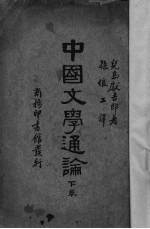 兒島獻吉郎著
孫俍工譯
中國文學通論
下卷
商務印書館發行